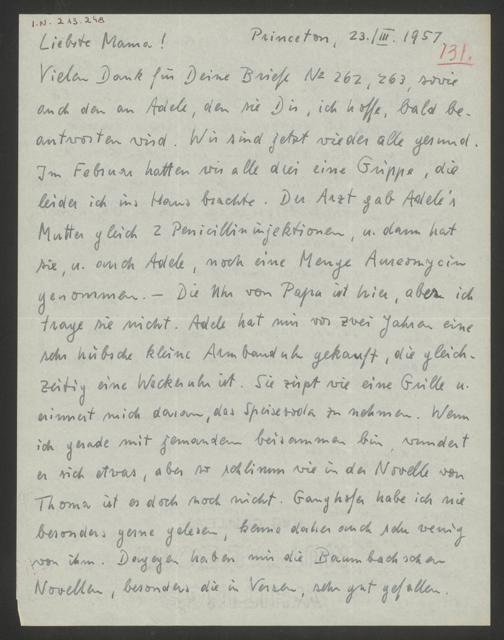 I.N. 213.248
Liebste Mama! Princeton, 23./III. 1957
131.
Vielen Dank für Deine Briefe No 262, 263, sowie
auch den an Adele, den sie Dir, ich hoffe, bald be-
antworten wird. Wir sind jetzt wieder alle gesund.
Im Februar hatten wir alle drei eine Grippe, die
leider ich ins Haus brachte. Der Arzt gab Adele's
Mutter gleich 2 Penicillininjektionen, u. dann hat
sie, u. auch Adele, noch eine Menge Aureomycin
genommen. – Die Uhr von Papa ist hier, aber ich
trage sie nicht. Adele hat mir vor zwei Jahren eine
sehr hübsche kleine Armbanduhr gekauft, die gleich-
zeitig eine Weckeruhr ist. Sie zirpt wie eine Grille u.
erinnert mich daran, das Speisesoda zu nehmen. Wenn
ich gerade mit jemandem beisammen bin, wundert
er sich etwas, aber so schlimm wie in der Novelle von
Thoma ist es doch noch nicht. Ganghofer habe ich nie
besonders gerne gelesen, kenne daher auch sehr wenig
von ihm. Dagegen haben mir die Baumbachschen
Novellen, besonders die in Versen, sehr gut gefallen.